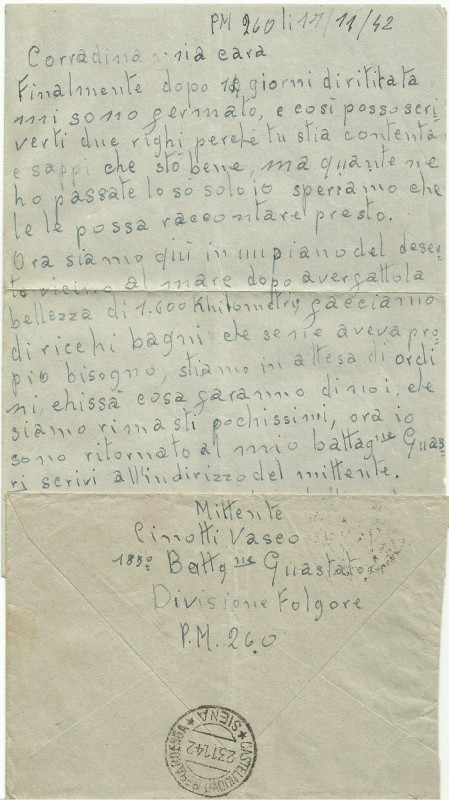 PM 260 li 17/11/42
Corradina mia cara
Finalmente dopo giorni di ritirata
mi sono fermato, e così posso scri
verti due righi perché tu stia contenta
e sappi che stò bene, ma quante ne
ho passate lo so solo io sperramo che
le le possa raccontare presto.
Ora siamo quì in un piano del deser
to vicino al mare dopo aver fatto la
bellezza di 1.600 Khilometri, facciamo
di ricchi bagni che se ne aveva pro
pio bisogno, stiamo in attesa di ordi
ni, chissà cosa faranno di noi, che
siamo rimasti pochissimi, ora io
sono ritornato al mio battagne Guas
ri scrivi all'indirizzo del mittente.
Mittente
Cinotti Vasco
185º Battgne Guastato
Divisione Folgore
P.M. 260
CASTELNUOVO BERARDENGA
23.11.42
* SIENA *